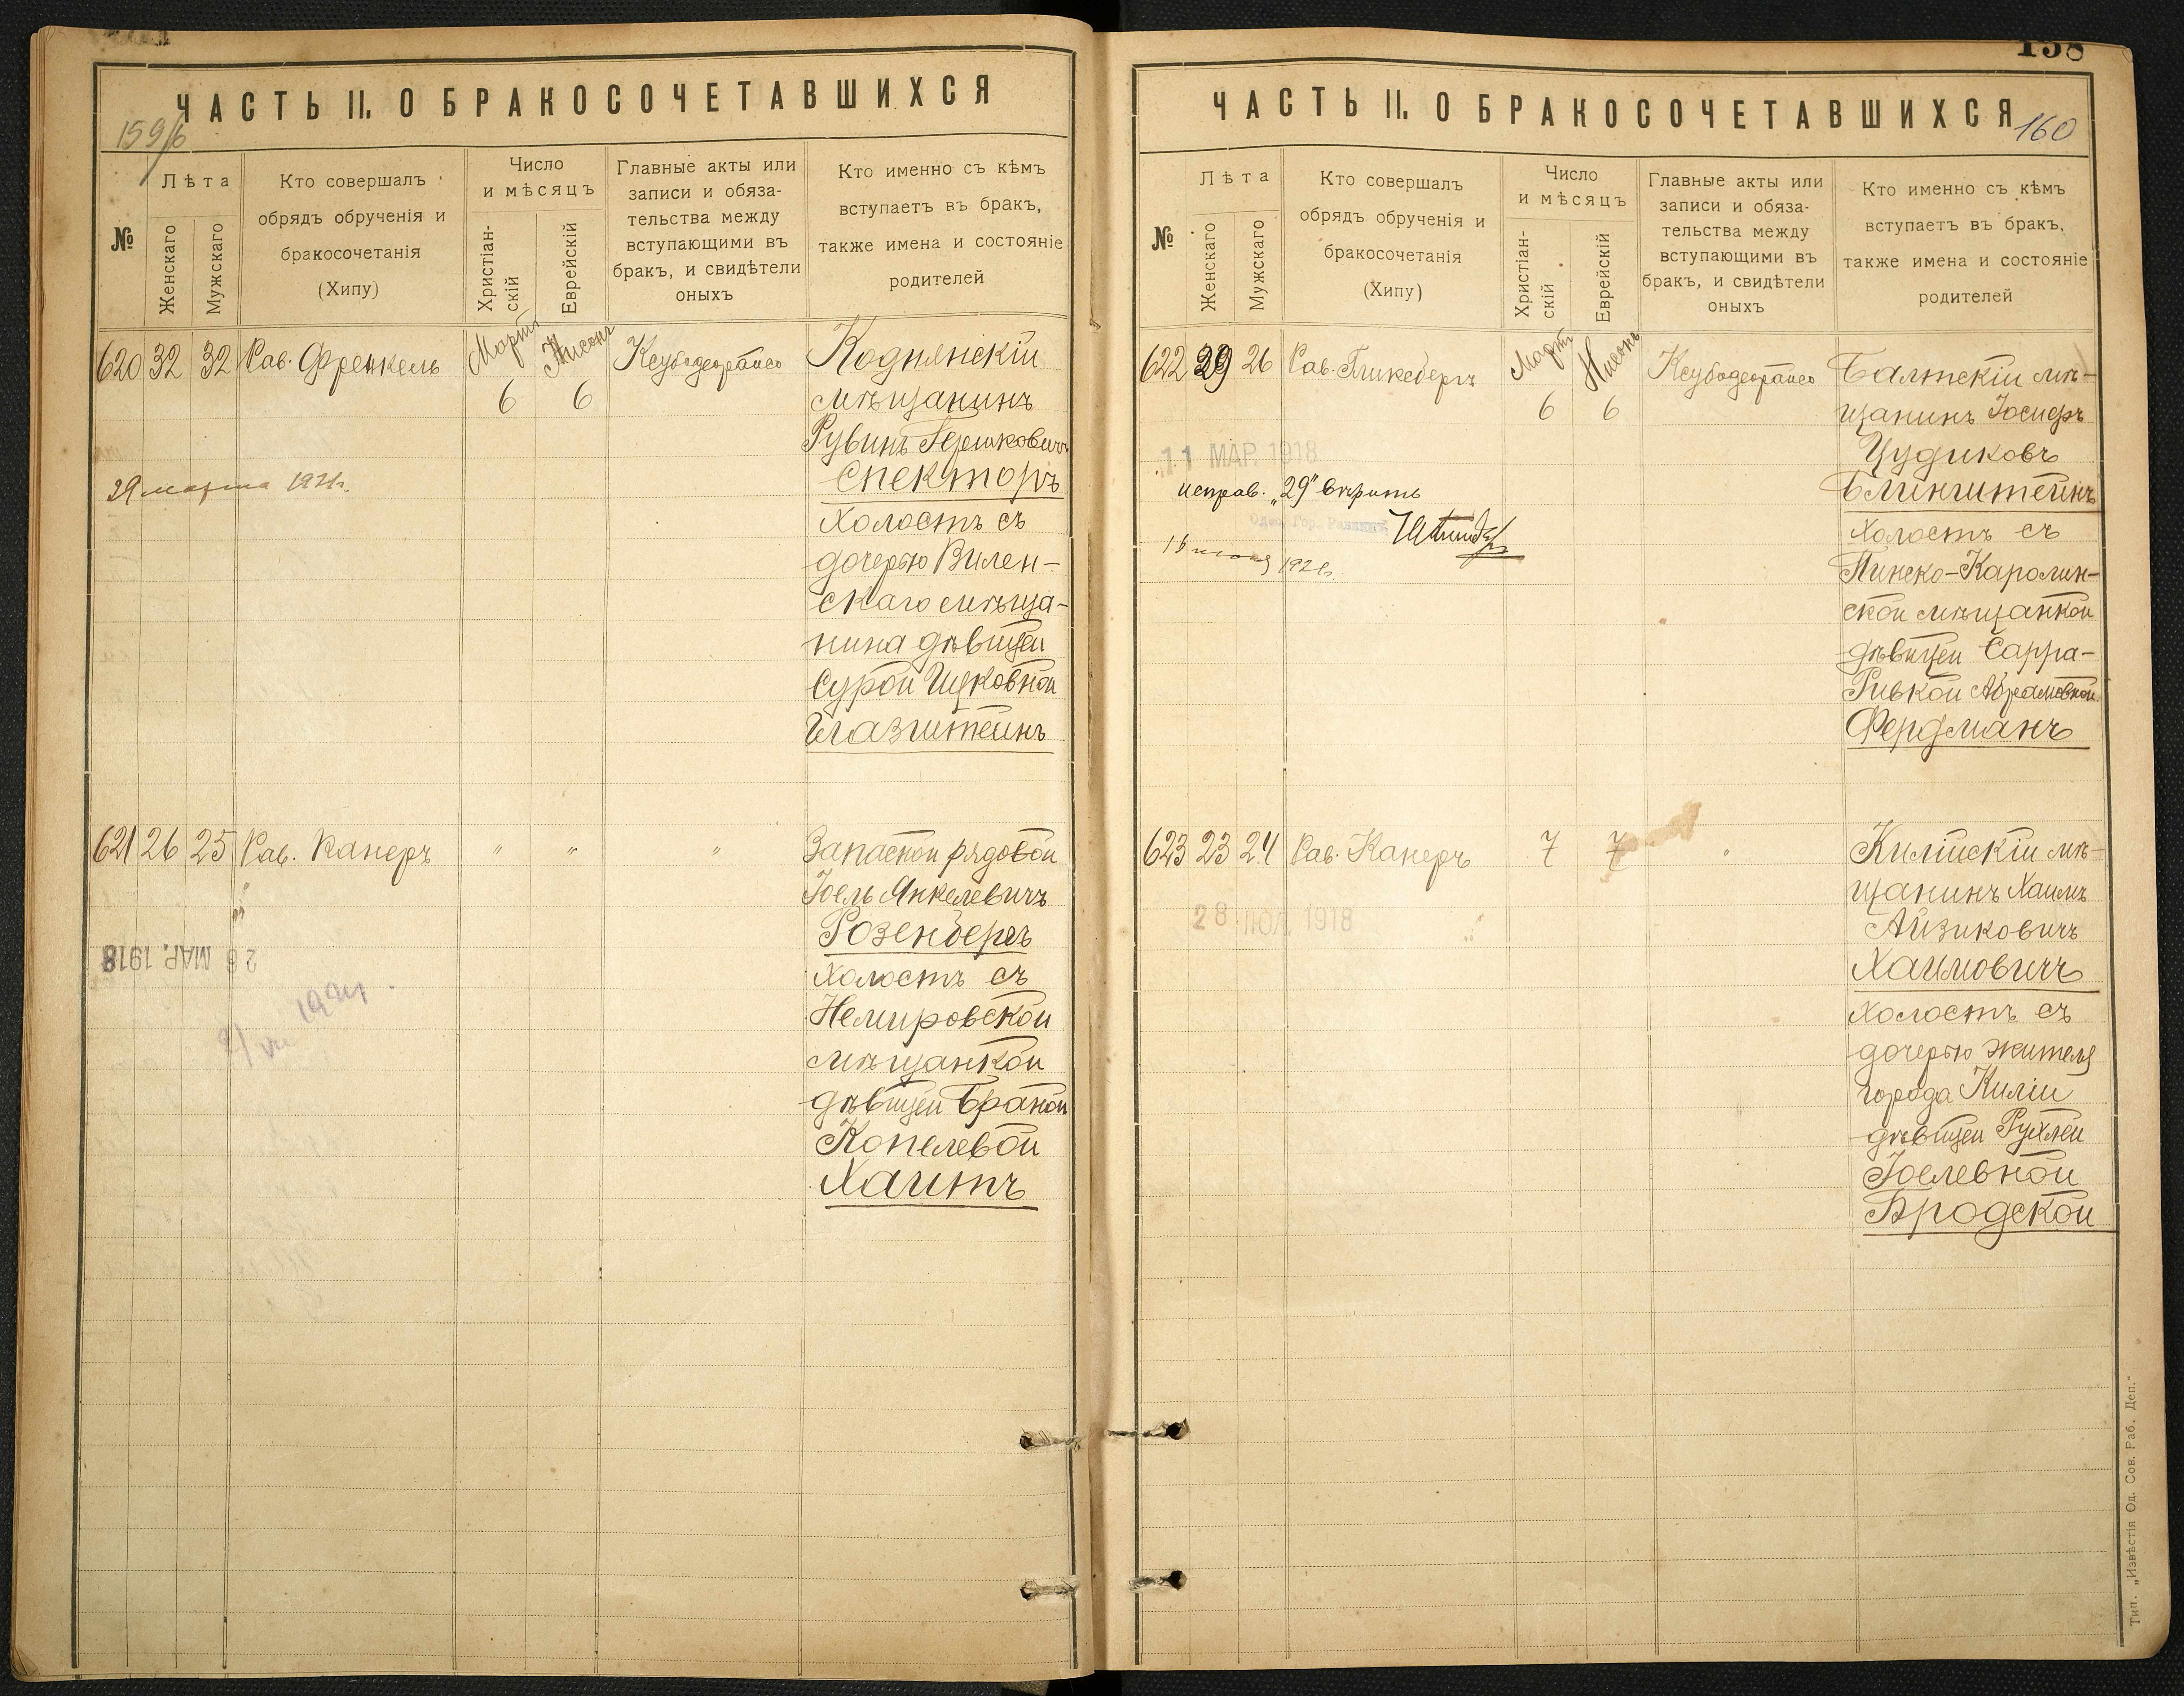 ЧАСТЬ II. О БРАКОСОЧЕТАВШИХСЯ
159/б
№
Лѣта
Женскаго
Мужскаго
Кто совершалъ
обрядъ обрученія и
бракосочетанія
(Хипу)
Число
и мѣсяцъ
Христіан-
скій
Еврейскій
Главные акты или
записи и обяза-
тельства между
вступающими въ
бракъ, и свидѣтели
оныхъ
Кто именно съ кѣмъ
вступаетъ въ бракъ,
также имена и состояніе
родителей
620 32 32 Рав. Френкель Мартъ 6 Нисонъ 6 Ксубодеорайсо
Коднянскій
мѣщанинъ
Рувинъ Гершковичъ
Спекторъ
холостъ съ
дочерью Вилен-
скаго мѣща-
нина дѣвицей
Сурой Ицковной
Глазштейнъ
29 марта 1921г.
621 26 25 Рав. Канеръ " " "
Запасной рядовой
Іоель Янкелевичъ
Розенбергъ
холостъ съ
Немировской
мѣщанкой
дѣвицей Браной
Копелевой
Хаитъ
26 МАР. 1918
ЧАСТЬ II. О БРАКОСОЧЕТАВШИХСЯ
158
160
№
Лѣта
Женскаго
Мужскаго
Кто совершалъ
обрядъ обрученія и
бракосочетанія
(Хипу)
Число
и мѣсяцъ
Христіан-
скій
Еврейскій
Главные акты или
записи и обяза-
тельства между
вступающими въ
бракъ, и свидѣтели
оныхъ
Кто именно съ кѣмъ
вступаетъ въ бракъ,
также имена и состояніе
родителей
622 29 26 Рав. Гликсбергъ Мартъ 6 Нисонъ 6 Ксубодеорайсо
Балтскій мѣ-
щанинъ Іосифъ
Цудиковъ
Блинштейнъ
холостъ съ
Пинско-Каролин-
ской мѣщанкой
дѣвицей Сарра-
Ривкой Абрамовной
Фердманъ
11 МАР. 1918
исправ. „29" вѣрить
Одес. Гор. Раввинъ
1921г.
623 23 24 Рав. Канеръ 7 7 "
Килійскій мѣ-
щанинъ Хаимъ
Айзиковичъ
Хаимовичъ
холостъ съ
дочерью жителя
города Киліи
дѣвицей Рухлей
Іоелевной
Бродской
28 ІЮЛ. 1918
Тип. „Извѣстія Од. Сов. Раб. Деп."